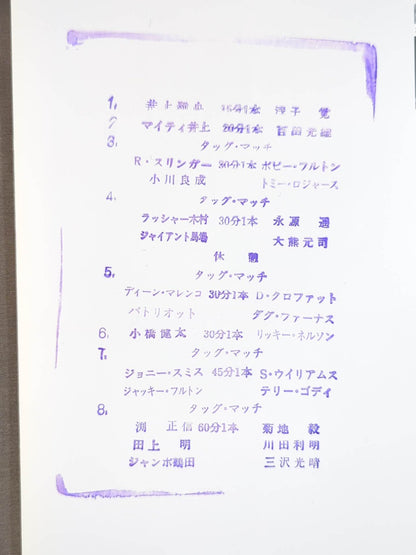 1. 井上雅央 15分1本 淳子 覚
2 マイティ井上 20分1本 百田光雄
3. タッグ・マッチ
R・スリンガー 30分1本 ボビー・フルトン
小川良成 トミー・ロジャース
4. タッグ・マッチ
ラッシャー木村 30分1本 永源 遥
ジャイアント馬場 大熊元司
休憩
5. タッグ・マッチ
ディーン・マレンコ 30分1本 D・クロファット
パトリオット ダグ・ファーナス
6. 小橋健太 30分1本 リッキー・ネルソン
7. タッグ・マッチ
ジョニー・スミス 45分1本 S・ウイリアムス
ジャッキー・フルトン テリー・ゴディ
8. タッグ・マッチ
渕 正信 60分1本 菊地 毅
田上 明 川田利明
ジャンボ鶴田 三沢光晴